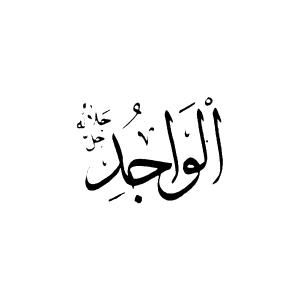 الْوَاجِدُ
جل جلاله